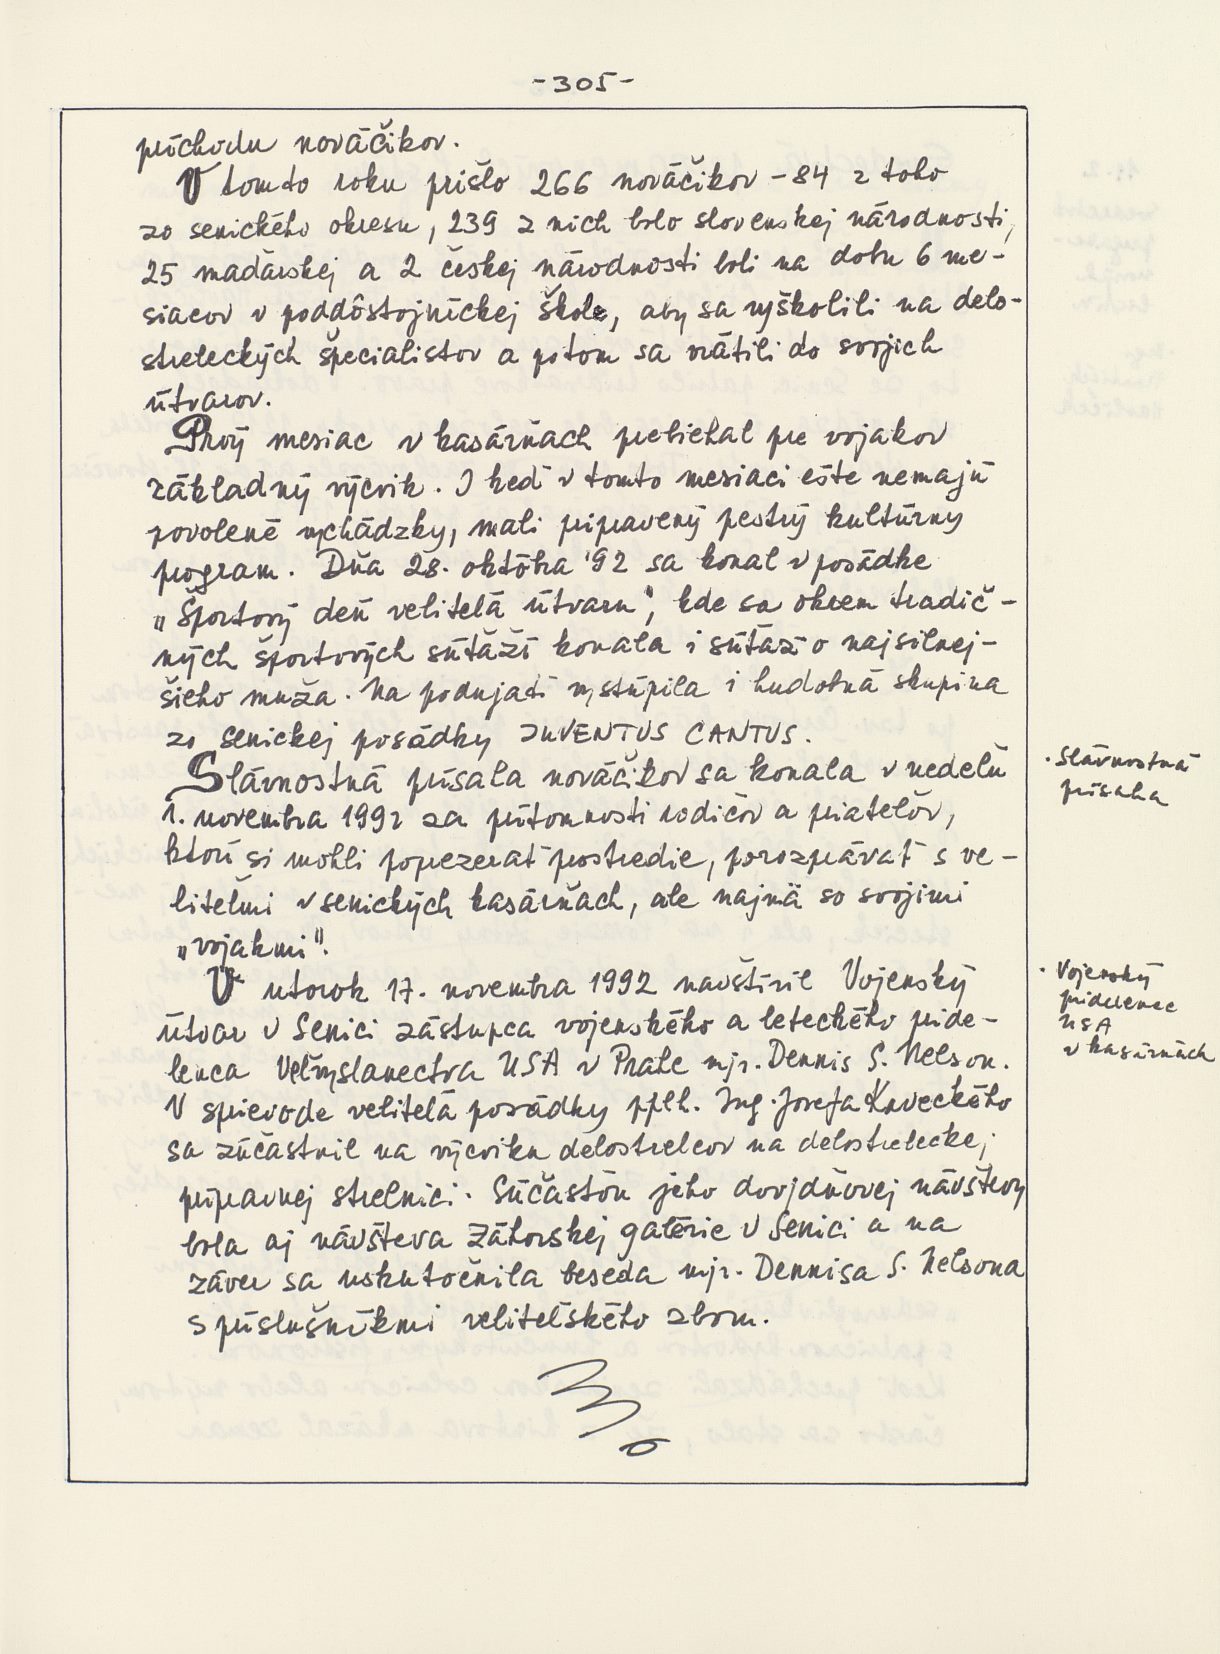 -305-
príchodu nováčikov.
V tomto roku prišlo 266 nováčikov - 84 z toho
zo senického okresu, 239 z nich bolo slovenskej národnosti,
25 maďarskej a 2 českej národnosti boli na dobu 6 me-
siacov v poddôstojníckej škole, aby sa vyškolili na delo-
streleckých špecialistov a potom sa vrátili do svojich
útvarov.
Prvý mesiac v kasárňach prebiehal pre vojakov
základný výcvik. I keď v tomto mesiaci ešte nemajú
povolené vychádzky, mali pripravený pestrý kultúrny
program. Dňa 28. októbra '92 sa konal v posádke
„Športový deň veliteľa útvaru", kde sa okrem tradič-
ných športových súťaží konala i súťaž o najsilnej-
šieho muža. Na podujatí vystúpila i hudobná skupina
zo senickej posádky JUVENTUS CANTUS.
Slávnostná prísaha nováčikov sa konala v nedeľu
1. novembra 1992 za prítomnosti rodičov a priateľov,
ktorí si mohli poprezerať prostredie, porozprávať s ve-
liteľmi v senických kasárňach, ale najmä so svojimi
„vojakmi".
V utorok 17. novembra 1992 navštívil Vojenský
útvar v Senici zástupca vojenského a leteckého pride-
lenca Veľvyslanectva USA v Prahe mjr. Dennis S. Nelson.
V sprievode veliteľa posádky pplk. Ing. Jozefa Kaveckého
sa zúčastnil na výcviku delostrelcov na delostreleckej
prípravnej strelnici. Súčasťou jeho dvojdňovej návštevy
bola aj návšteva Záhorskej galérie v Senici a na
záver sa uskutočnila beseda mjr. Dennisa S. Nelsona
s príslušníkmi veliteľského zboru.
· Slávnostná
prísaha
· Vojenský
pridelenec
USA
v kasárňach